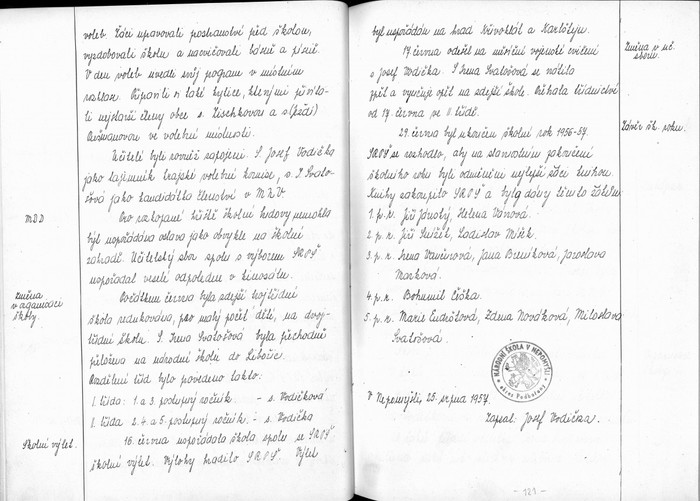 voleb. Žáci upravovali prostranství před školou,
vyzdobovali školu a nacvičovali básně a písně.
V den voleb uvedli svůj program v místním
rozhlase. Připnuli si také kytice, kterými přivíta-
li nejstarší členy obce s. Zischkovou a s.
ve volební místnosti.
Učitelé byli rovněž zapojeni. S. Josef Vodička
jako tajemník krajské volební komise, s. I. Svato-
šová jako kandidátka členství v MNV.
MDD
Pro rozkopané hřiště školní budovy nemohla
být uspořádána oslava jako obvykle na školní
zahradě. Učitelský sbor spolu s výborem SRPŠ
uspořádal veselé odpoledne v kinosálu.
Změna
v organisaci
školy.
Počátkem června byla zdejší trojtřídní
škola redukována, pro malý počet dětí, na dvoj-
třídní školu. S. Irena Svatošová byla přechodně
přeložena na národní školu do Libořic.
Rozdělení tříd bylo provedeno takto:
I. třída: 1. a 3. postupný ročník. - s. Vodičková
II. třída 2. 4. a 5. postupný ročník. - s. Vodička
Školní výlet.
16. června uspořádala škola spolu se SRPŠ
školní výlet. Výlohy hradilo SRPŠ. Výlet
byl uspořádán na hrad Křivoklát a Karlštejn.
Změna v uč.
sboru.
17. června odešel na měsíční vojenské cvičení
s. Josef Vodička. S. Irena Svatošová se vrátila
zpět a vyučuje opět na zdejší škole. Přebrala třídnictví
od 17. června ve II. třídě.
Závěr šk. roku.
29. června byl ukončen školní rok 1956-57.
SRPŠ se rozhodlo, aby na slavnostním zakončení
školního roku byli odměněni nejlepší žáci knihou.
Knihy zakoupilo SRPŠ a byly dány těmto žákům:
1. p. r. Jiří Jánský, Helena Vánová.
2. p. r. Jiří , Ladislav Míšek.
3. p. r. Irena , Jana , Jaroslava
Marková.
4. p. r. Bohumil Čička.
5. p. r. Marie , Zdena Nováková, Miloslava
Svatošová.
NÁRODNÍ ŠKOLA V NEPOMYŠLI
okres Podbořany
V Nepomyšli, 25. srpna 1957.
Zapsal: Josef Vodička.
- 121 -